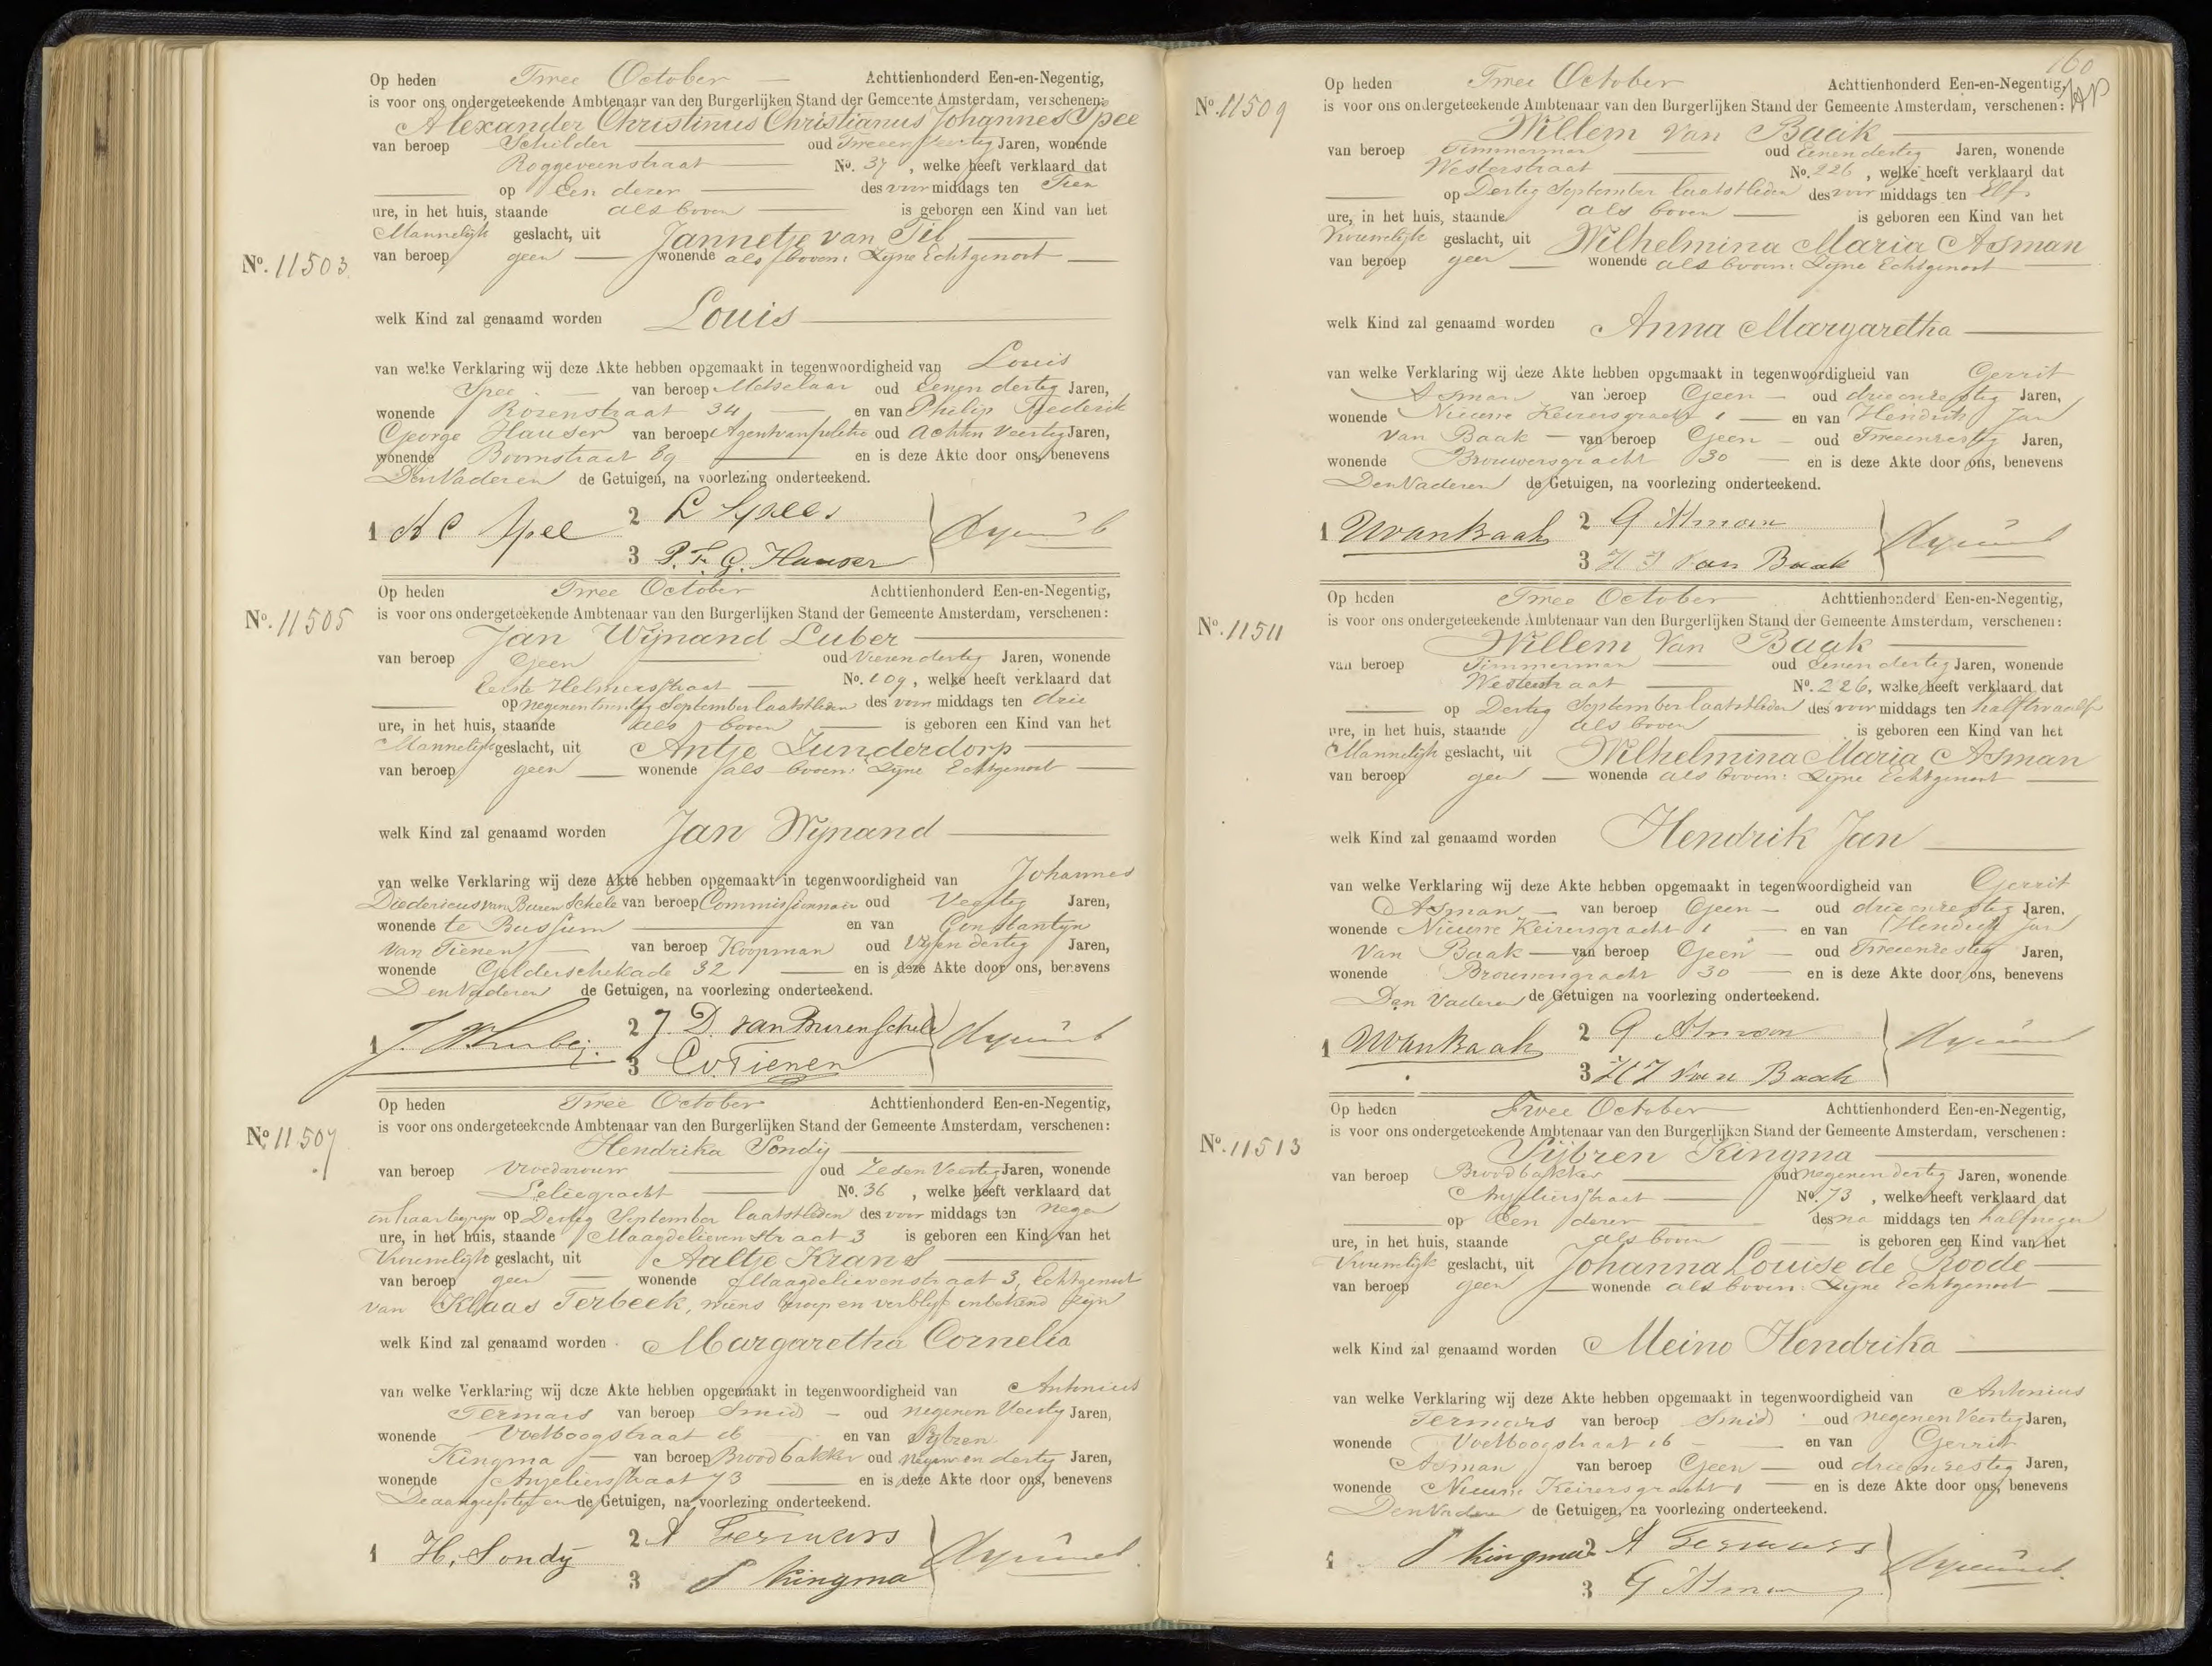 Op heden Twee October — Achttienhonderd Een-en-Negentig,
is voor ons ondergeteekende Ambtenaar van den Burgerlijken Stand der Gemeente Amsterdam, verschenen:
Alexander Christinus Christianus Johannes Spee
van beroep Schilder oud Tweeenveertig Jaren, wonende
Roggeveenstraat No. 37, welke heeft verklaard dat
op Een dezer des voor middags ten Tien
ure, in het huis, staande als boven is geboren een Kind van het
No. 11503
Mannelijk geslacht, uit Jannetje van Til
van beroep geen wonende als boven: Zijne Echtgenoot
welk Kind zal genaamd worden Louis
van welke Verklaring wij deze Akte hebben opgemaakt in tegenwoordigheid van Louis
Spee van beroep Metselaar oud Eenendertig Jaren,
wonende Rozenstraat 34 en van Philip Frederik
George Hauser van beroep Agent van politie oud Achten Veertig Jaren,
wonende Boomstraat 69 en is deze Akte door ons, benevens
Den Vader en de Getuigen, na voorlezing onderteekend.
1 A C Spee 2 L Spee
3 P. F. G. Hauser
Op heden Twee October Achttienhonderd Een-en-Negentig,
No. 11505 is voor ons ondergeteekende Ambtenaar van den Burgerlijken Stand der Gemeente Amsterdam, verschenen:
Jan Wijnand Luber
van beroep Geen oud Vierendertig Jaren, wonende
Eerste Helmersstraat No. 109, welke heeft verklaard dat
op negenentwintig September laatstleden des voor middags ten drie
ure, in het huis, staande als boven is geboren een Kind van het
Mannelijk geslacht, uit Antje Zunderdorp
van beroep geen wonende als boven: Zijne Echtgenoot
welk Kind zal genaamd worden Jan Wijnand
van welke Verklaring wij deze Akte hebben opgemaakt in tegenwoordigheid van Johannes
Diedericus van Buren Schele van beroep Commissionnair oud Veertig Jaren,
wonende te Bussum en van Constantyn
van Tienen van beroep Koopman oud Vijfendertig Jaren,
wonende Gelderschekade 32 en is deze Akte door ons, benevens
Den Vader en de Getuigen, na voorlezing onderteekend.
1 J. W. Luber 2 J. D. van Buren Schele
3 C. v. Tienen
Op heden Twee October Achttienhonderd Een-en-Negentig,
No. 11507 is voor ons ondergeteekende Ambtenaar van den Burgerlijken Stand der Gemeente Amsterdam, verschenen:
Hendrika Sondij
van beroep Vroedvrouw oud Zeven Veertig Jaren, wonende
Leliegracht No. 36, welke heeft verklaard dat
in haar bijzijn op Dertig September laatstleden des voor middags ten negen
ure, in het huis, staande Maagdelievenstraat 3 is geboren een Kind van het
Vrouwelijk geslacht, uit Aaltje Krans
van beroep geen wonende Maagdelievenstraat 3, Echtgenoot
van Klaas Terbeek, wiens beroep en verblijf onbekend zijn
welk Kind zal genaamd worden Margaretha Cornelia
van welke Verklaring wij deze Akte hebben opgemaakt in tegenwoordigheid van Antonius
Termars van beroep Smid oud negenen Veertig Jaren,
wonende Voetboogstraat 16 en van Sybren
Kingma van beroep Broodbakker oud negenen dertig Jaren,
wonende Anjeliersstraat 73 en is deze Akte door ons, benevens
De aangeefster en de Getuigen, na voorlezing onderteekend.
1 H. Sondij 2 A Termars
3 S Kingma
160
Op heden Twee October Achttienhonderd Een-en-Negentig,
No. 11509 is voor ons ondergeteekende Ambtenaar van den Burgerlijken Stand der Gemeente Amsterdam, verschenen:
Willem van Baak
van beroep Timmerman oud Eenendertig Jaren, wonende
Westerstraat No. 226, welke heeft verklaard dat
op Dertig September laatstleden des voor middags ten Elf
ure, in het huis, staande als boven is geboren een Kind van het
Vrouwelijk geslacht, uit Wilhelmina Maria Asman
van beroep geen wonende als boven: Zijne Echtgenoot
welk Kind zal genaamd worden Anna Margaretha
van welke Verklaring wij deze Akte hebben opgemaakt in tegenwoordigheid van Gerrit
Asman van beroep Geen oud drieenzestig Jaren,
wonende Nieuwe Keizersgracht 1 en van Hendrik Jan
van Baak van beroep Geen oud Tweeenzestig Jaren,
wonende Brouwersgracht 30 en is deze Akte door ons, benevens
Den Vader en de Getuigen, na voorlezing onderteekend.
1 W van Baak 2 G Asman
3 H J van Baak
Op heden Twee October Achttienhonderd Een-en-Negentig,
No. 11511 is voor ons ondergeteekende Ambtenaar van den Burgerlijken Stand der Gemeente Amsterdam, verschenen:
Willem van Baak
van beroep Timmerman oud Eenendertig Jaren, wonende
Westerstraat No. 226, welke heeft verklaard dat
op Dertig September laatstleden des voor middags ten halftwaalf
ure, in het huis, staande als boven is geboren een Kind van het
Mannelijk geslacht, uit Wilhelmina Maria Asman
van beroep geen wonende als boven: Zijne Echtgenoot
welk Kind zal genaamd worden Hendrik Jan
van welke Verklaring wij deze Akte hebben opgemaakt in tegenwoordigheid van Gerrit
Asman van beroep Geen oud drieenzestig Jaren,
wonende Nieuwe Keizersgracht 1 en van Hendrik Jan
van Baak van beroep Geen oud Tweeenzestig Jaren,
wonende Brouwersgracht 30 en is deze Akte door ons, benevens
Den Vader en de Getuigen na voorlezing onderteekend.
1 W van Baak 2 G Asman
3 H J van Baak
Op heden Twee October Achttienhonderd Een-en-Negentig,
No. 11513 is voor ons ondergeteekende Ambtenaar van den Burgerlijken Stand der Gemeente Amsterdam, verschenen:
Sijbren Kingma
van beroep Broodbakker oud negenendertig Jaren, wonende
Anjeliersstraat No. 73, welke heeft verklaard dat
op Een dezer des na middags ten halfnegen
ure, in het huis, staande als boven is geboren een Kind van het
Vrouwelijk geslacht, uit Johanna Louise de Roode
van beroep geen wonende als boven: Zijne Echtgenoot
welk Kind zal genaamd worden Meino Hendrika
van welke Verklaring wij deze Akte hebben opgemaakt in tegenwoordigheid van Antonius
Termars van beroep Smid oud negenen Veertig Jaren,
wonende Voetboogstraat 16 en van Gerrit
Asman van beroep Geen oud drieenzestig Jaren,
wonende Nieuwe Keizersgracht 1 en is deze Akte door ons, benevens
Den Vader en de Getuigen, na voorlezing onderteekend.
1 S Kingma 2 A Termars
3 G Asman